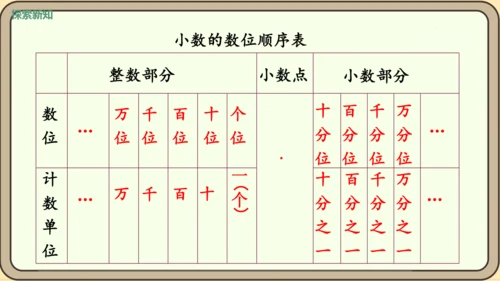 探索新知
小数的数位顺序表
整数部分 小数点 小数部分
数位 … 万位 千位 百位 十位 个位 . 十分位 百分位 千分位 万分位 …
计数单位 … 万 千 百 十 一(个) 十分之一 百分之一 千分之一 万分之一 …